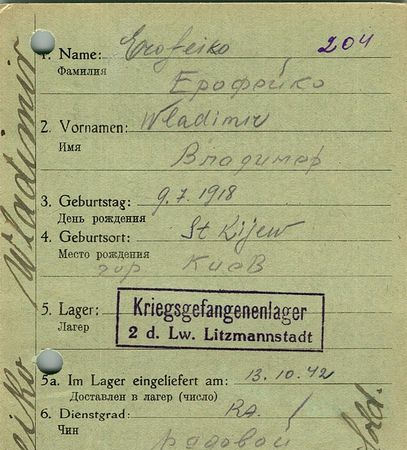 204
1. Name: Erofeiko
Фамилия
Ерофейко
2. Vornamen: Wladimir
Имя
Владимер
3. Geburtstag: 9.7.1918
День рождения
4. Geburtsort: St Kijew
Место рождения
гор Киев
5. Lager: Kriegsgefangenenlager
Лагер 2 d. Lw. Litzmannstadt
5a. Im Lager eingeliefert am: 13.10.42
Доставлен в лагер (число)
6. Dienstgrad: RA.
Чин
рядовой
Sold.
eiko Wladimir